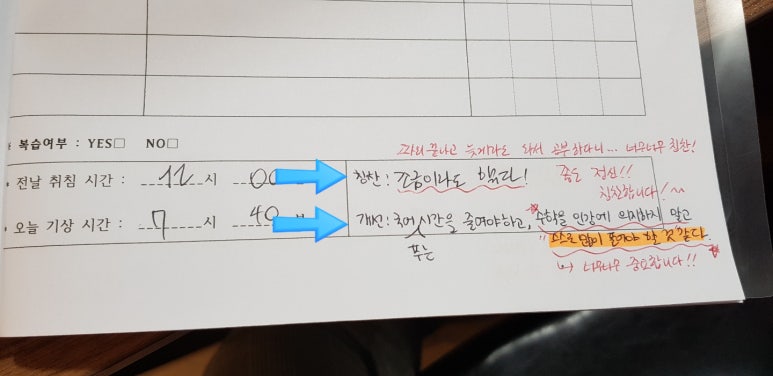 복습여부 : YES□ NO□
파리 끝나고 늦게라도 와서 공부하다니... 너무너무 칭찬!
전날 취침 시간 : 12시 00
칭찬 : 조금이라도 했다!
좋은 정신!!
칭찬합니다!~
오늘 기상 시간 : 7 시 40 분
개선 : 국어 푸는 시간을 줄여야하고, 수학을 인강에 의지하지 말고
스스로 많이 풀어야 할 것 같다.
↳ 너무너무 중요합니다!!